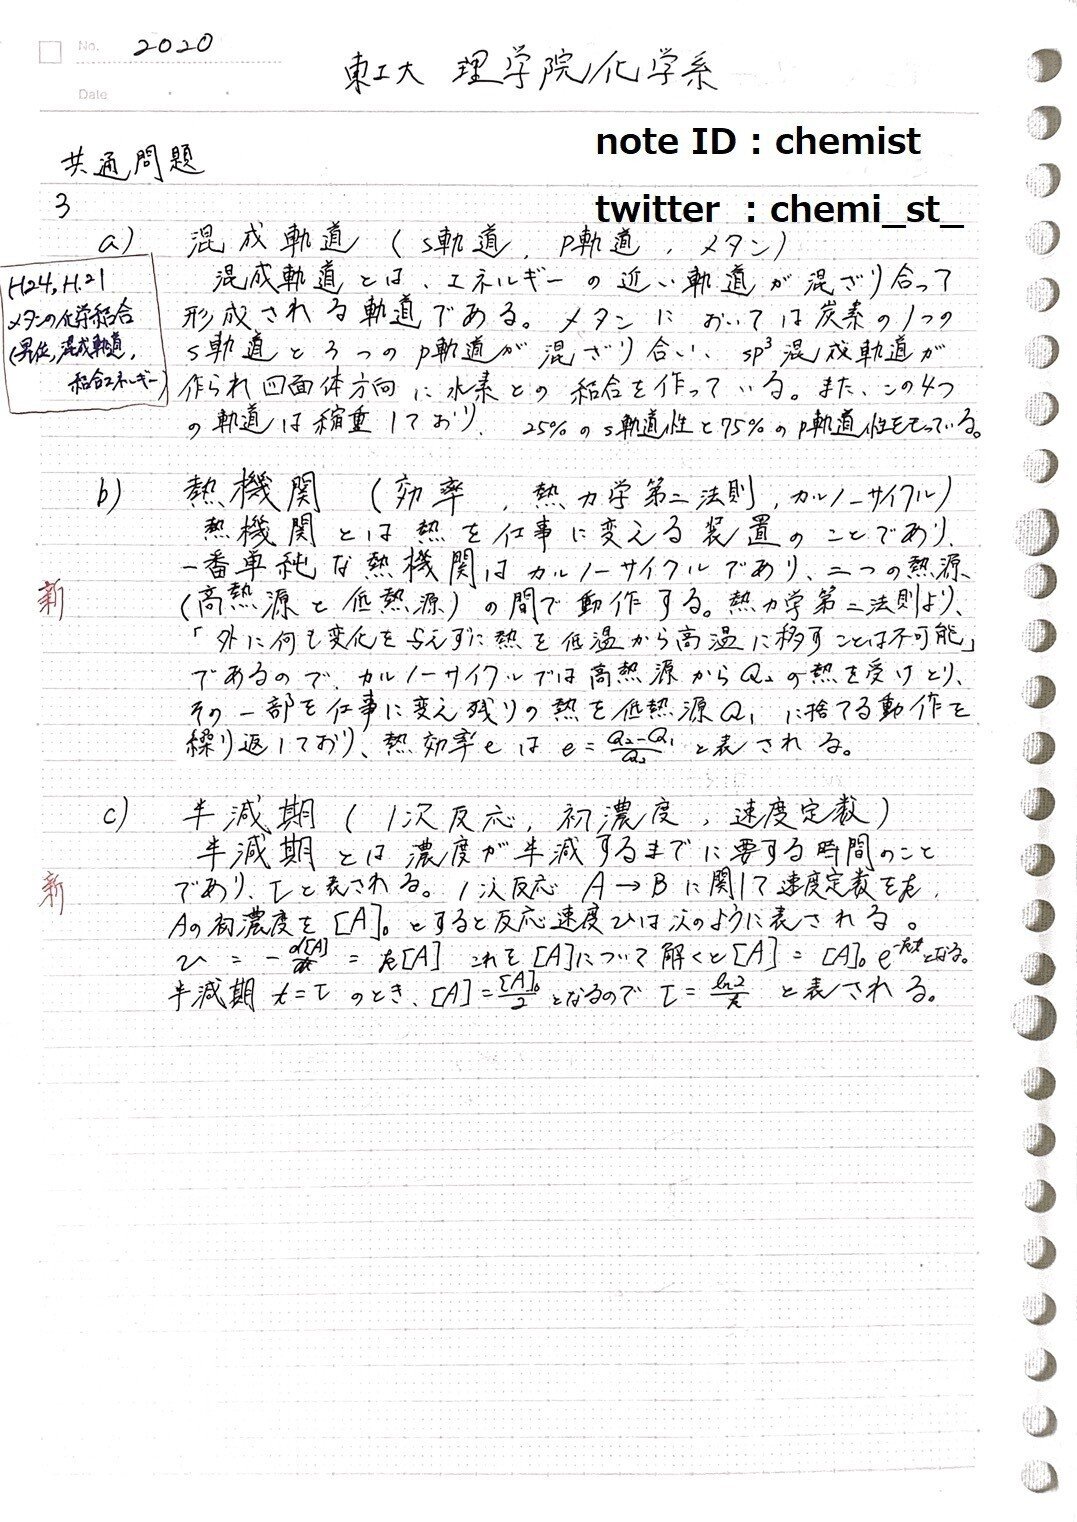 No. 2020
Date
東工大 理学院/化学系
note ID : chemist
twitter : chemi_st_
共通問題
3
a) 混成軌道 (s軌道, p軌道, メタン)
H24, H.21
メタンの化学結合
(異位, 混成軌道,
結合エネルギー)
混成軌道とは、エネルギーの近い軌道が混ざり合って
形成される軌道である。メタンにおいては炭素の1つの
s軌道と3つのp軌道が混ざり合い、sp³混成軌道が
作られ四面体方向に水素との結合を作っている。また、この4つ
の軌道は縮重しており、25%のs軌道性と75%のp軌道性をもっている。
b) 熱機関 (効率, 熱力学第二法則, カルノーサイクル)
熱機関とは熱を仕事に変える装置のことであり、
一番単純な熱機関はカルノーサイクルであり、二つの熱源
新
(高熱源と低熱源)の間で動作する。熱力学第二法則より、
「外に何も変化を与えずに熱を低温から高温に移すことは不可能」
であるので、カルノーサイクルでは高熱源からQ₂の熱を受けとり、
その一部を仕事に変え残りの熱を低熱源Q₁に捨てる動作を
繰り返しており、熱効率eは e = (Q₂-Q₁)/Q₂ と表される。
c) 半減期 (1次反応, 初濃度, 速度定数)
半減期とは濃度が半減するまでに要する時間のこと
新
であり、τと表される。1次反応 A→Bに関して速度定数をk,
Aの初濃度を[A]₀とすると反応速度vは次のように表される。
v = -d[A]/dt = k[A] これを[A]について解くと[A] = [A]₀e^{-kt}となる。
半減期 t=τのとき、[A]=[A]₀/2 となるので τ = ln2/k と表される。